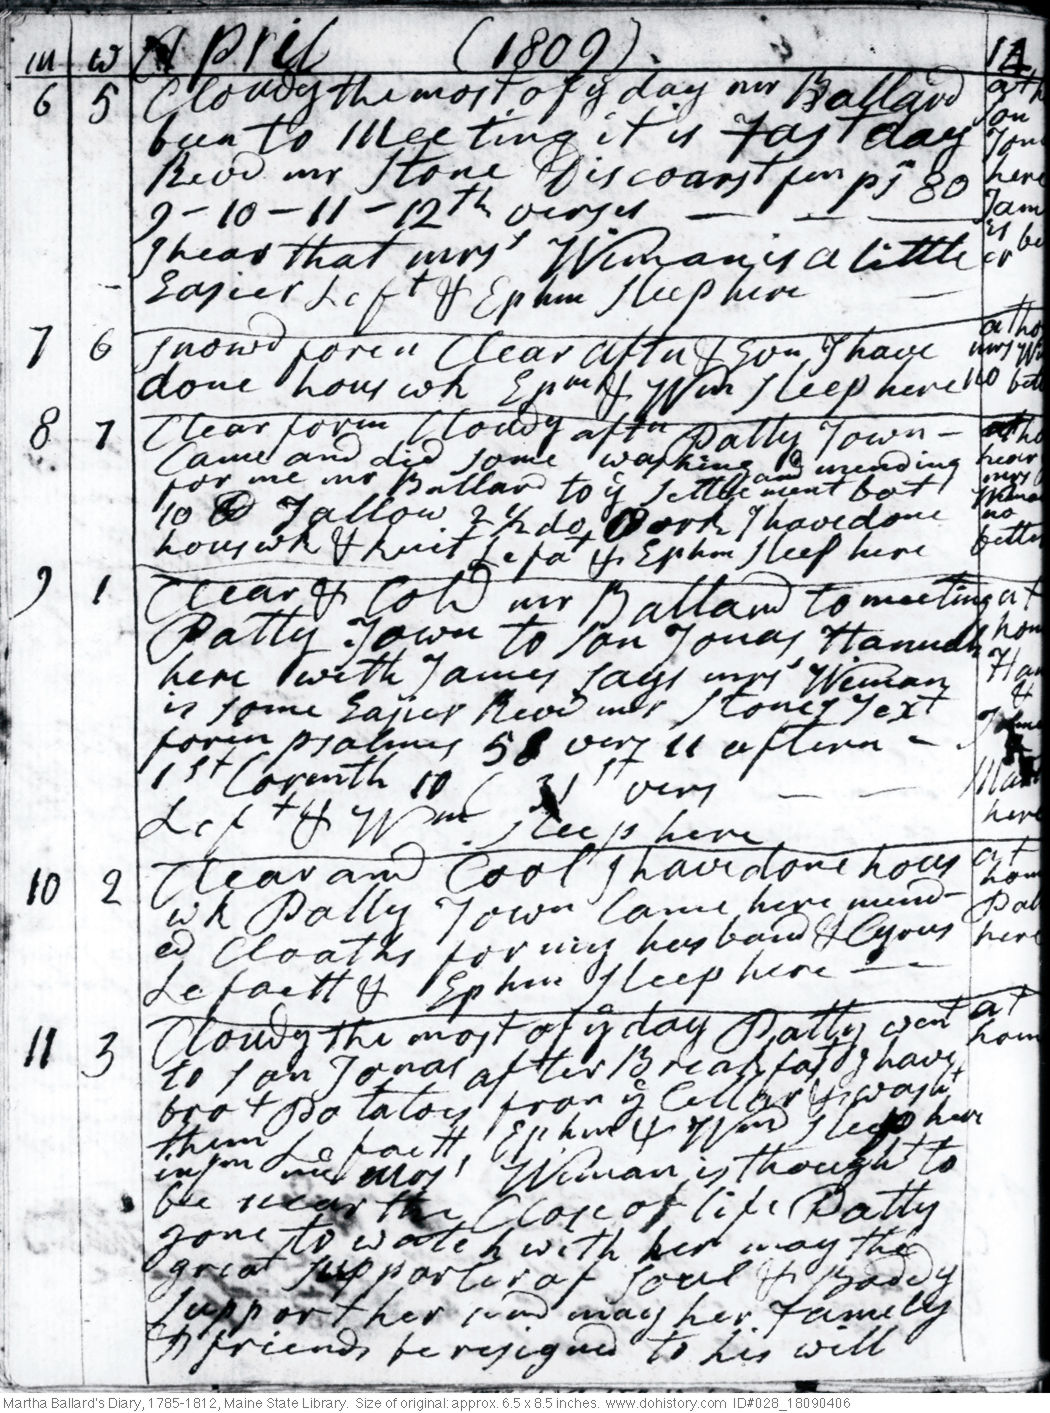 m w April (1809). 
6 5 Cloudy the most of ye day mr Ballard
been to Meeting it is Fast day
Revd mr Stone Discoarst from ps 80
9-10-11-12th verses
I hear that mrs Wiman is a little
Easier Laft & Ephm sleep here
7 6 snowd foren Clear aftn & Evn I have
done hous wk Epm & Wm sleep here
8 7 Clear foren Cloudy aftn Patty Town -
Came and did some washing and mending
for me mr Ballard to ye settlement bot
10 Tallow 2 1/2 do Pork I have done
hous wk & knit Lefat & Ephm sleep here
9 1 Clear & Cold mr Ballard to meeting
Patty Town to son Jonas Hannah
here with James says mrs Wiman
is some Easier Revd mr Stones Text
foren psalms 58 vers 11 aftern -
1st Corinth 10 31st vers
Left & Wm sleep here
10 2 Clear and Cool I have done hous
wk Patty Town Came here mend-
ed Cloaths for my husband & Cyrus
Lefaett & Ephm sleep here
11 3 Cloudy the most of ye day Patty went
to son Jonas after Breakfast I have
brot Potatoes from ye Cellar & washt
them Lefaett Ephm & Wm sleep here
infm me Mrs Wiman is thought to
be near the Close of life Patty
gone to watch with her may the
great supporter of soul & Boddy
support her and may her Famely
& friends be resigned to his will
at
son
here
is
at
mrs
no
hear
mrs
no
at
&
here
at
here
at
Martha Ballard's Diary, 1785-1812, Maine State Library. Size of original: approx. 6.5 x 8.5 inches. www.dohistory.com ID#028_18090406